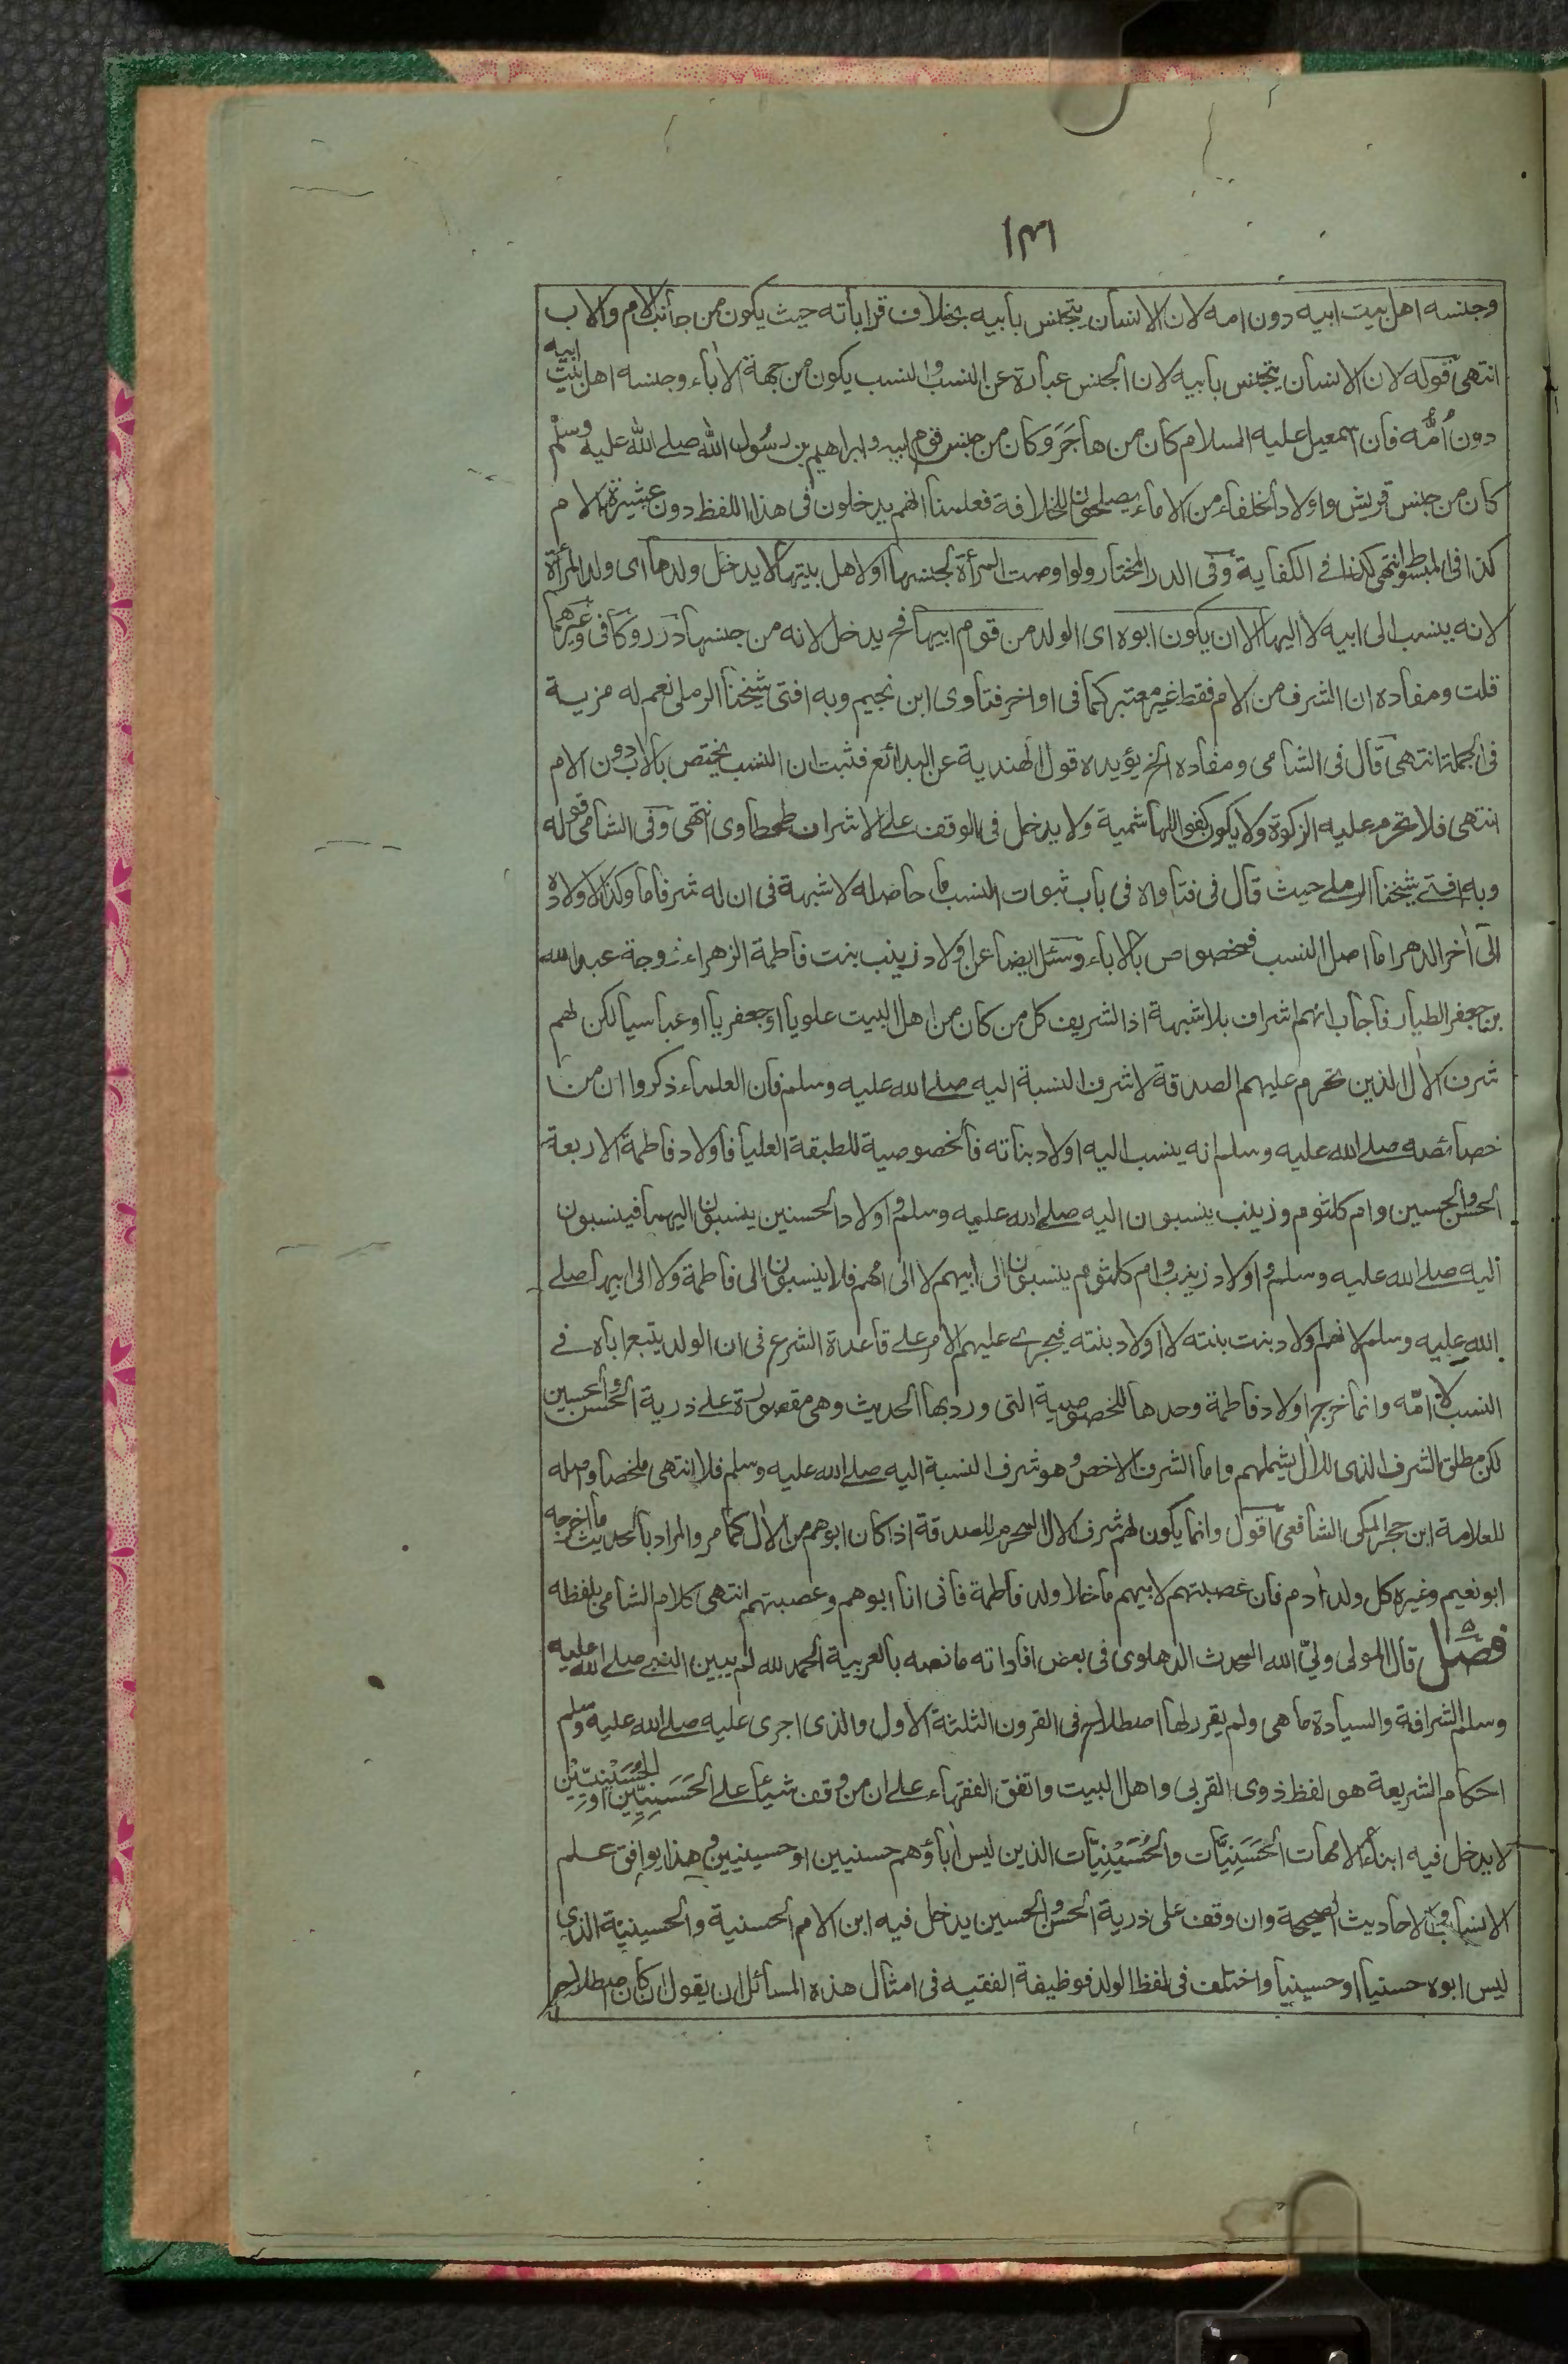 ١٣١
وجنسه اهل بيت ابيه دون امه لان الانسان يتجنس بابيه بخلاف قراباته حيث يكون من جانب الام والاب
انتهى قوله لان الانسان يتجنس بابيه لان الجنس عبارة عن النسب والنسب يكون من جهة الاٰباء وجنسه اهل بيت ابيه
دون اُمّه فان اسمعيل عليه السلام كان من هاجَرَ وكان من جنس قوم ابيه وابراهيم بن رسُول الله صلے الله عليه وسلم
كان من جنس قريش واولاد الخلفاء من الاماء يصلحون للخلافة فعلمنا انهم يدخلون فى هذا اللفظ دون عشيرة الام
كذا فى المبسوط انتهى كذا فے الكفاية وفى الدر المختار ولو اوصت المرأة لجنسها او لاهل بيتها لا يدخل ولدها اى ولد المرأة
لانه ينسب الى ابيه لا اليها الا ان يكون ابوه اى الولد من قوم ابيها فح يدخل لانه من جنسها درر وكافى وغيرهما
قلت ومفاده ان الشرف من الام فقط غير معتبر كما فى اواخر فتاوى ابن نجيم وبه افتى شيخنا الرملى نعم له مزية
فى الجملة انتهى قال فى الشامى ومفاده الخ يؤيده قول الهندية عن البدائع فثبت ان النسب يختص بالاب دون الام
انتهى فلا تحرم عليه الزكوة ولا يكون كفوا للهاشمية ولا يدخل فى الوقف علے الاشراف طحطاوى انتهى وفى الشامى قوله
وبه افتے شيخنا الرملے حيث قال فى فتاواه فى باب ثبوت النسب ما حاصله لا شبهة فى ان له شرفا ما وكذا لاولاده
الى اٰخر الدهر اما اصل النسب فمخصوص بالاباء وسئل ايضا عن اولاد زينب بنت فاطمة الزهراء زوجة عبد الله
بن جعفر الطيار فاجاب انهم اشراف بلا شبهة اذ الشريف كل من كان من اهل البيت علويا او جعفريا او عباسيا لكن لهم
شرف الاٰل الذين تحرم عليهم الصدقة لا شرف النسبة اليه صلے الله عليه وسلم فان العلماء ذكروا ان من
خصائصه صلے الله عليه وسلم انه ينسب اليه اولاد بناته فالخصوصية للطبقة العليا فاولاد فاطمة الاربعة
الحسن والحسين وام كلثوم وزينب ينسبون اليه صلے الله عليه وسلم واولاد الحسنين ينسبون اليهما فينسبون
اليه صلے الله عليه وسلم واولاد زينب وام كلثوم ينسبون الى ابيهم لا الى امهم فلا ينسبون الى فاطمة ولا الى ابيها صلے
الله عليه وسلم لانهم اولاد بنت بنته لا اولاد بنته فيجرے عليهم الامر علے قاعدة الشرع فى ان الولد يتبع اباه فے
النسب لا امّه وانما خرج اولاد فاطمة وحدها للخصوصية التى ورد بها الحديث وهى مقصورة علے ذرية الحسن والحسين
لكن مطلق الشرف الذى للاٰل يشملهم واما الشرف الاخص وهو شرف النسبة اليه صلے الله عليه وسلم فلا انتهى ملخصا واصله
للعلامة ابن حجر المكى الشافعى اقول وانما يكون لهم شرف الاٰل المحرم للصدقة اذا كان ابوهم من الاٰل كما مر والمراد بالحديث ما اخرجه
ابو نعيم وغيره كل ولد اٰدم فان عصبتهم لابيهم ما خلا ولد فاطمة فانى انا ابوهم وعصبتهم انتهى كلام الشامى بلفظه
فصل قال المولى ولىّ الله المحدث الدهلوى فى بعض افاداته ما نصه بالعربية الحمد لله لم يبين النبے صلے الله عليه
وسلم الشرافة والسيادة ما هى ولم يقرر لها اصطلاح فى القرون الثلثة الاول والذى اجرى عليه صلے الله عليه وسلم
احكام الشريعة هو لفظ ذوى القربى واهل البيت واتفق الفقهاء علے ان من وقف شيئا علے الحَسَنِيِّين او الحُسَيْنِيِّيْن
لا يدخل فيه ابناء الامهات الحَسَنِيَّات والحُسَيْنِيَّات الذين ليس اٰباؤهم حسنيين او حسينيين وهذا يوافق علم
الانساب والاحاديث الصحيحة وان وقف على ذرية الحسن والحسين يدخل فيه ابن الام الحسنية والحسينية الذى
ليس ابوه حسنيا او حسينيا واختلف فى لفظ الولد فوظيفة الفقيه فى امثال هذه المسائل ان يقول ان كان اصطلاح